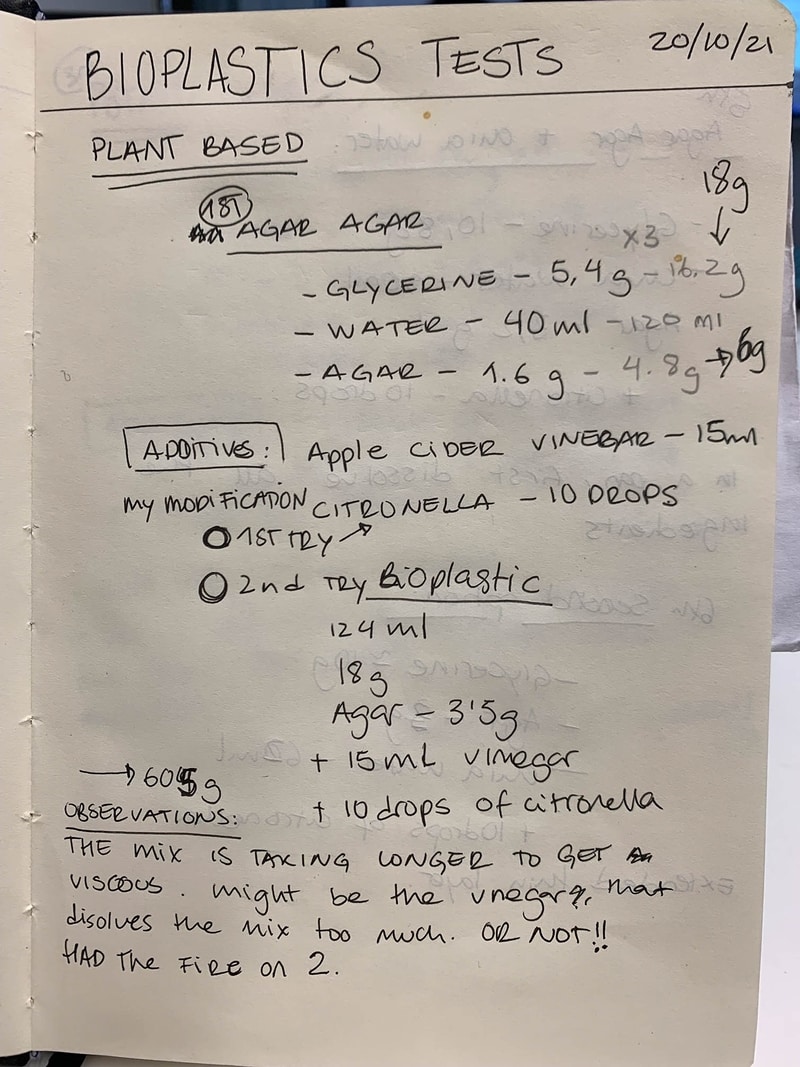 BIOPLASTICS TESTS 20/10/21
PLANT BASED
1ST AGAR AGAR
18g
x3 ↓
- GLYCERINE - 5,4 g - 16.2g
- WATER - 40 ml - 120 ml
- AGAR - 1.6 g - 4.8g → 6g
ADDITIVES: Apple CIDER VINEBAR - 15ml
my MODIFICATION CITRONELLA - 10 DROPS
1ST TRY ↗
2nd TRY Bioplastic
124 ml
18g
Agar - 3'5g
+ 15mL vinegar
→ 605g
+ 10 drops of citronella
OBSERVATIONS:
THE mix IS TAKING LONGER TO GET
VISCOUS. might be the vnegar?, that
disolves the mix too much. OR NOT!!
HAD The FIRE on 2.